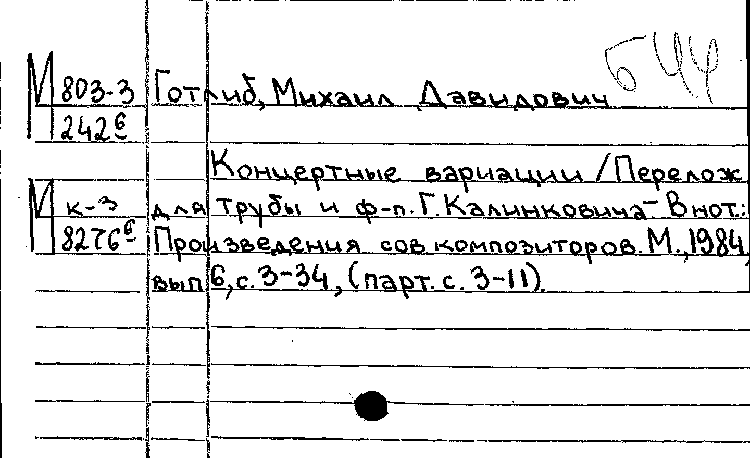 М 803-3 Готлиб, Михаил Давидович
242б
Концертные вариации / Перелож.
М к-3 для трубы и ф-п. Г. Калинковича - В нот.:
8276б Произведения сов. композиторов. М., 1984,
вып 6, с. 3-34, (парт. с. 3-11).